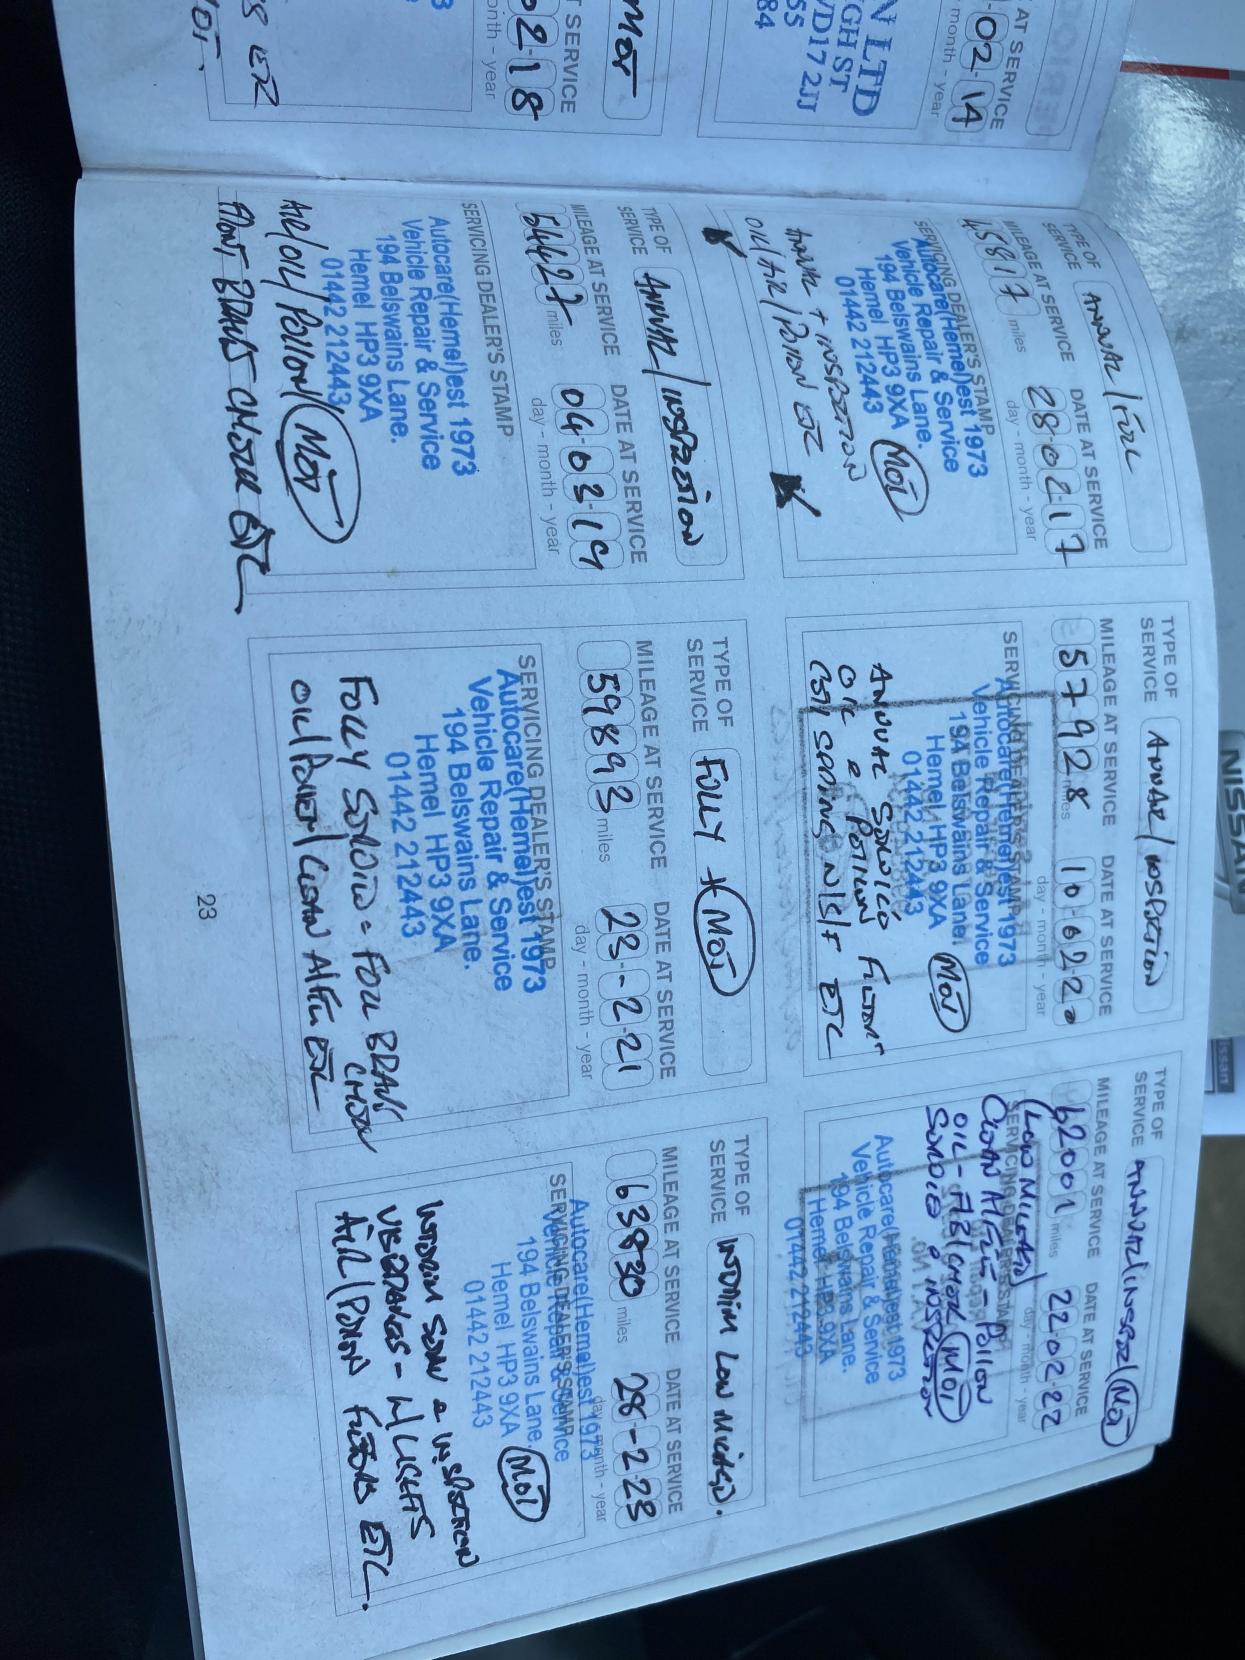 AT SERVICE
-02-14
month - year
N LTD
GH ST
WD17 2JJ
55
84
MOT
T SERVICE
02-18
onth - year
ETC
TYPE OF
SERVICE
ANNUAL/FULL
MILEAGE AT SERVICE
DATE AT SERVICE
45817
miles
28-02-17
day - month - year
SERVICING DEALER'S STAMP
Autocare(Hemel)est 1973
Vehicle Repair & Service
194 Belswains Lane.
Hemel HP3 9XA
01442 212443
MOT
ANNUAL + INSPECTION
OIL/AIR/POLLON ETC
TYPE OF
SERVICE
ANNUAL/INSPECTION
MILEAGE AT SERVICE
DATE AT SERVICE
57928
miles
10-02-20
day - month - year
SERVICING DEALER'S STAMP
Autocare(Hemel)est 1973
Vehicle Repair & Service
194 Belswains Lane.
Hemel HP3 9XA
01442 212443
MOT
ANNUAL SERVICE
OIL & POLLON FILTER
SPRING N/S/F ETC
TYPE OF
SERVICE
ANNUAL/INSPEC/MOT
MILEAGE AT SERVICE
DATE AT SERVICE
62001
miles
22-02-22
day - month - year
(LOW MILEAGE)
SERVICING DEALER'S STAMP
CLEAN AIR - POLLON
OIL - CHECK MOT
SERVICE & INSPECTION
Autocare(Hemel)est 1973
Vehicle Repair & Service
194 Belswains Lane.
Hemel HP3 9XA
01442 212443
TYPE OF
SERVICE
ANNUAL/INSPECTION
MILEAGE AT SERVICE
DATE AT SERVICE
54427
miles
04-03-19
day - month - year
SERVICING DEALER'S STAMP
Autocare(Hemel)est 1973
Vehicle Repair & Service
194 Belswains Lane.
Hemel HP3 9XA
01442 212443
AIR/OIL/POLLON/MOT
FRONT BRAKES CHECK ETC
TYPE OF
SERVICE
FULLY + MOT
MILEAGE AT SERVICE
DATE AT SERVICE
59893
miles
23-2-21
day - month - year
SERVICING DEALER'S STAMP
Autocare(Hemel)est 1973
Vehicle Repair & Service
194 Belswains Lane.
Hemel HP3 9XA
01442 212443
FULLY SERVICE - FULL BRAKE
CHECK
OIL/POLLEN/CLEAN AIR ETC
TYPE OF
SERVICE
INTERIM LOW MILEAGE.
MILEAGE AT SERVICE
DATE AT SERVICE
63830
miles
28-2-23
day - month - year
SERVICING DEALER'S STAMP
Autocare(Hemel)est 1973
Vehicle Repair & Service
194 Belswains Lane.
Hemel HP3 9XA
01442 212443
MOT
INTERIM SERV & INSPECTION
- W/LIGHTS
AIR/POLLON FILTERS ETC.
23
NISSAN